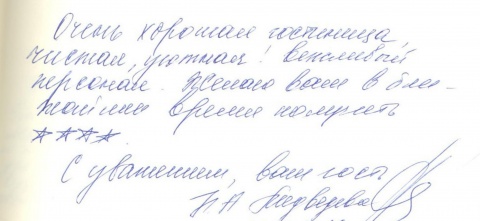 Очень хорошая гостиница,
чистая, уютная! Вежливый
персонал. Желаю вам в бли-
жайшее время получить
****.
С уважением, ваш гость
Н А